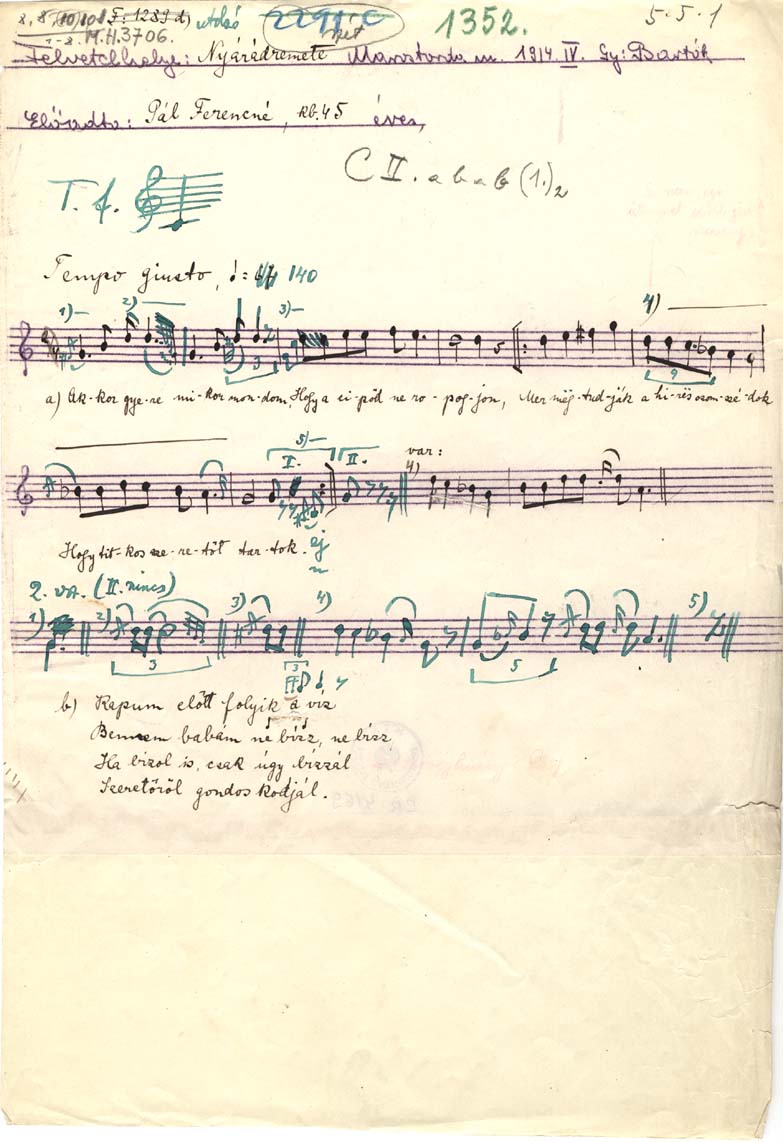 8, 8, 10, 10 F: 1289 d) utolsó 1352. 5·5·1
M.H. 3706.
Felvétel helye: Nyárádremete Marostorda m. 1914. IV. Gy: Bartók
Előadta: Pál Ferencné, kb. 45 éves,
C II. a b a b (1.)2
T. f.
Tempo giusto, 140
1) 2) 3) 4)
3 9
a) Ak-kor gye-re mi-kor mon-dom, Hogy a ci-pőd ne ro-pog-jon, Mer még-tud-ják a hi-rës szom-szé-dok
5) I. II. var: 4)
Hogy tit-kos sze-re-tőt tar-tok. ej
2. va. (II. nincs)
1) 2) 3) 4) 5)
3 5
3
b) Kapum előtt folyik a víz
Bennem babám ne bízz, ne bízz
Ha bízol is, csak úgy bízzál
Szeretőről gondoskodjál.